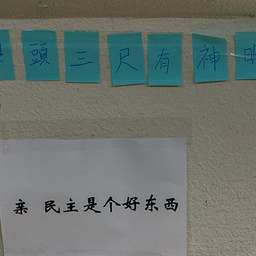 頭三尺有神
亲 民主是个好东西